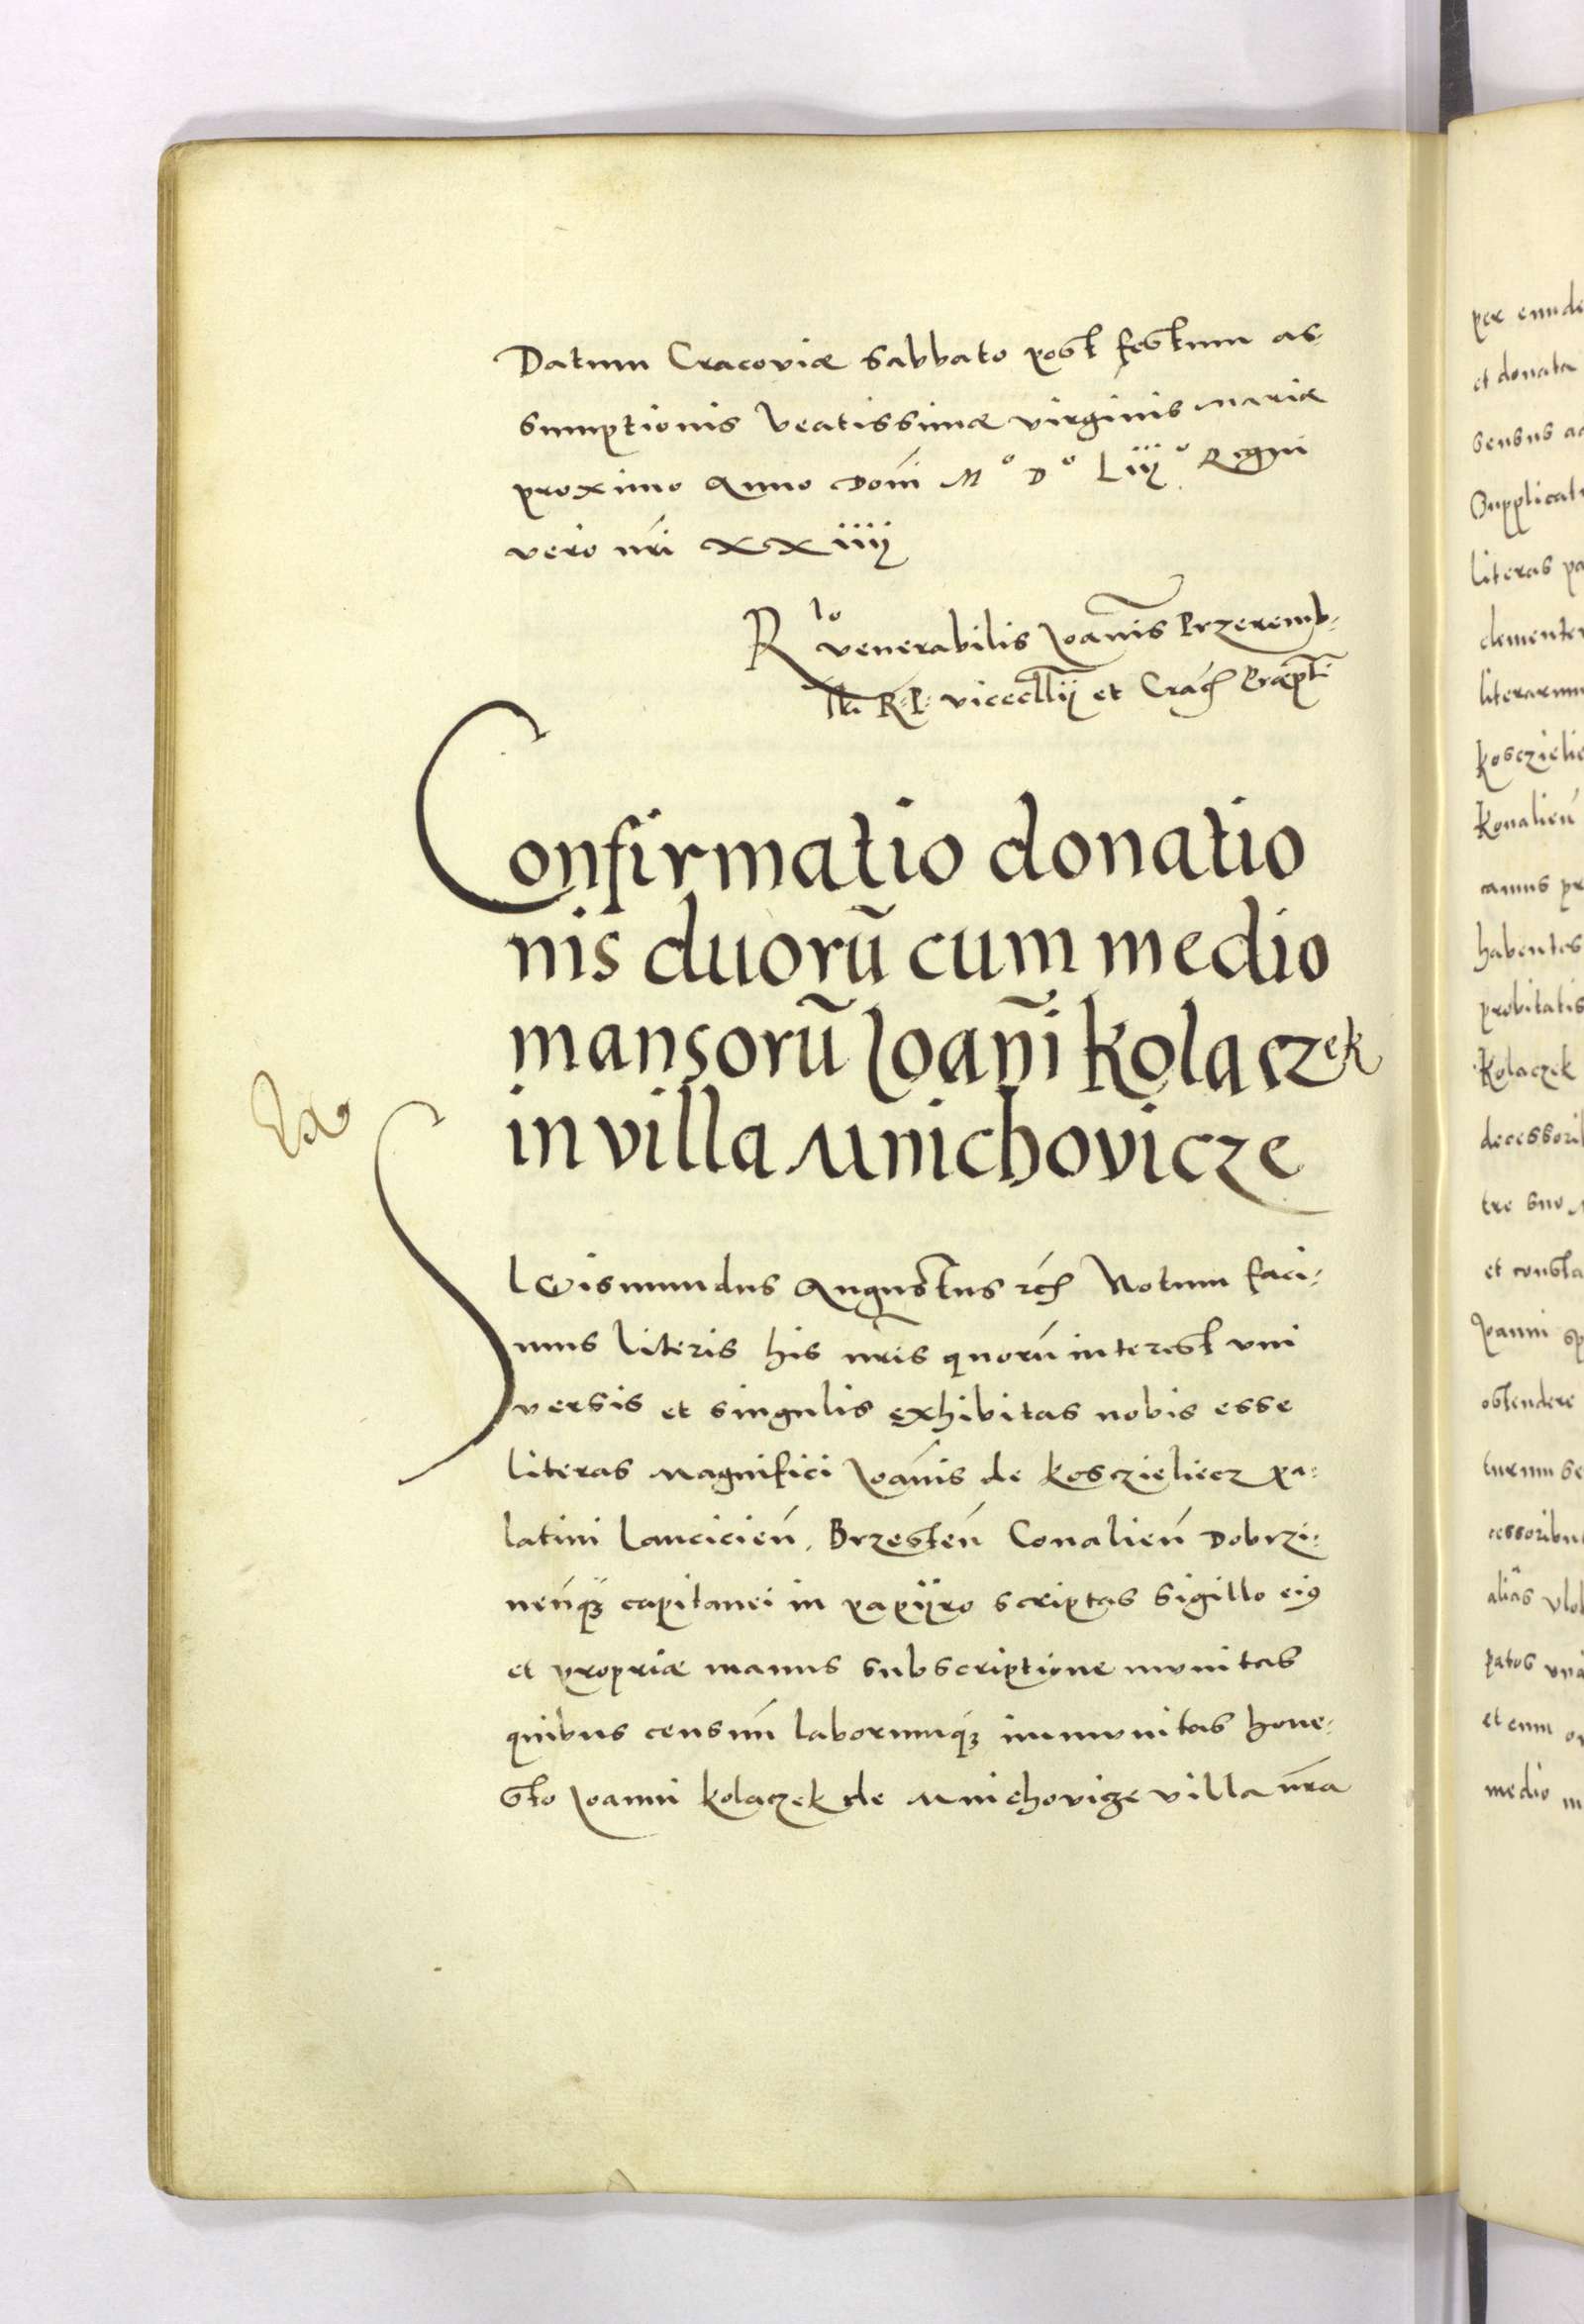 Datum Cracoviæ Sabbato post festum as
sumptionis beatissimæ virginis Mariæ
proximo Anno Domí M° D° Liij° Regni
vero nrí xxiiij
R lo venerabilis Joannis Przeremb:
R: P: vicecllij et
Confirmatio donatio
nis duorū cum medio
mansorū Joan̄i Kolaczek
in villa Mnichovicze
Sigismundus Augustus rc̃ Notum faci:
mus literis his nrĩs quorú interest vni
versis et singulis exhibitas nobis esse
literas Magnifici Joánis de Kosczieliecz pa:
latini Lancicień, Brzesteń Conalień Dobrzi:
neńqꝫ capitanei in papijro scriptas sigillo eiꝰ
et propriæ manus subscriptione munitas
quibus censuū laborumqꝫ immunitas hone:
sto Joanni Kolaczek de Mnichovicze villa nr̃a
per eunde
et donata
sensus ac
Supplicat
literas pa
clementer
literarum
Kosczielie
Konalień
camus pr
habentes
probitatis
Kolaczek
decessorib
tre suo
et consta
Joanni sp
ostendere
turum se
cessoribu
aliâs vlo
patos
et cum
medio m